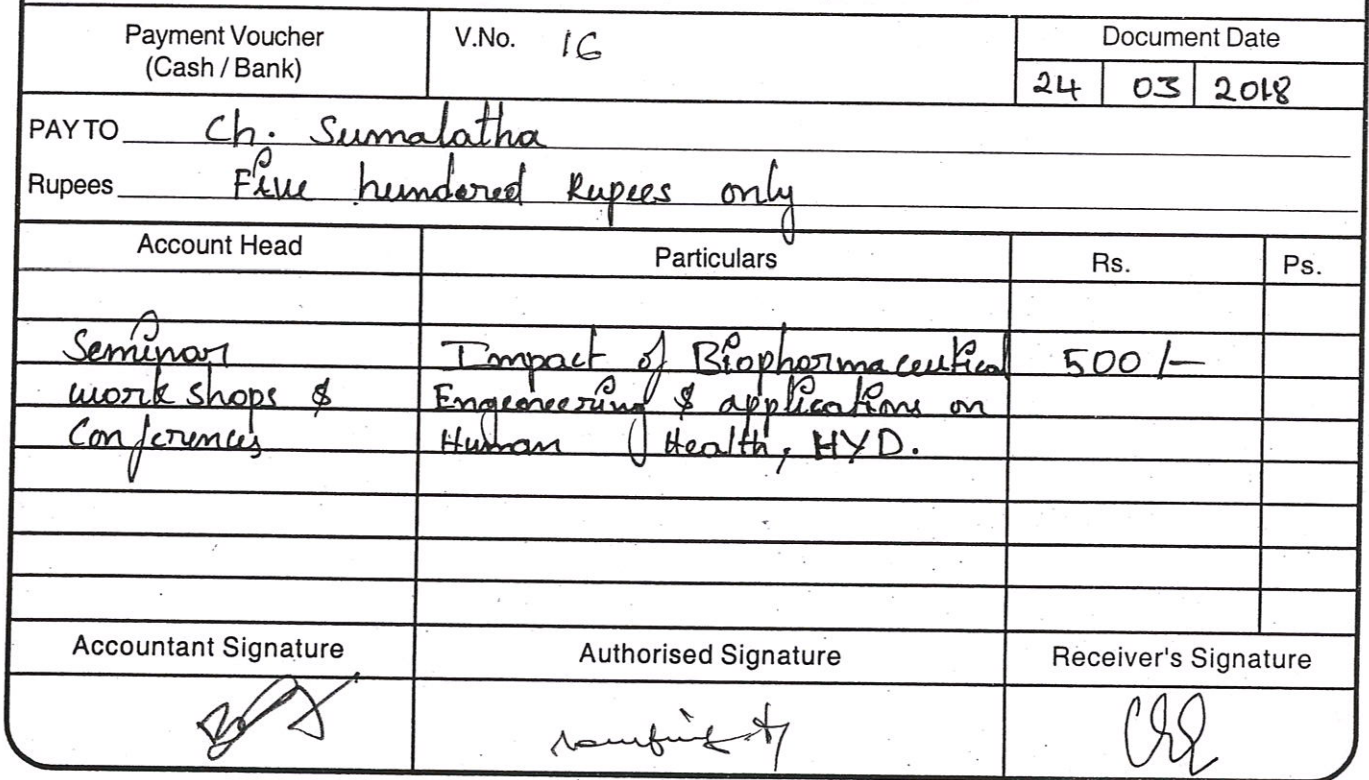 Payment Voucher
(Cash / Bank)
V.No. 16
Document Date
24 03 2018
PAY TO Ch. Sumalatha
Rupees Five hundered Rupees only
Account Head Particulars Rs. Ps.
Seminar Impact of Biopharmaceutical 500/-
work shops & Engeneering & applications on
Conferences Human Health, HYD.
Accountant Signature Authorised Signature Receiver's Signature